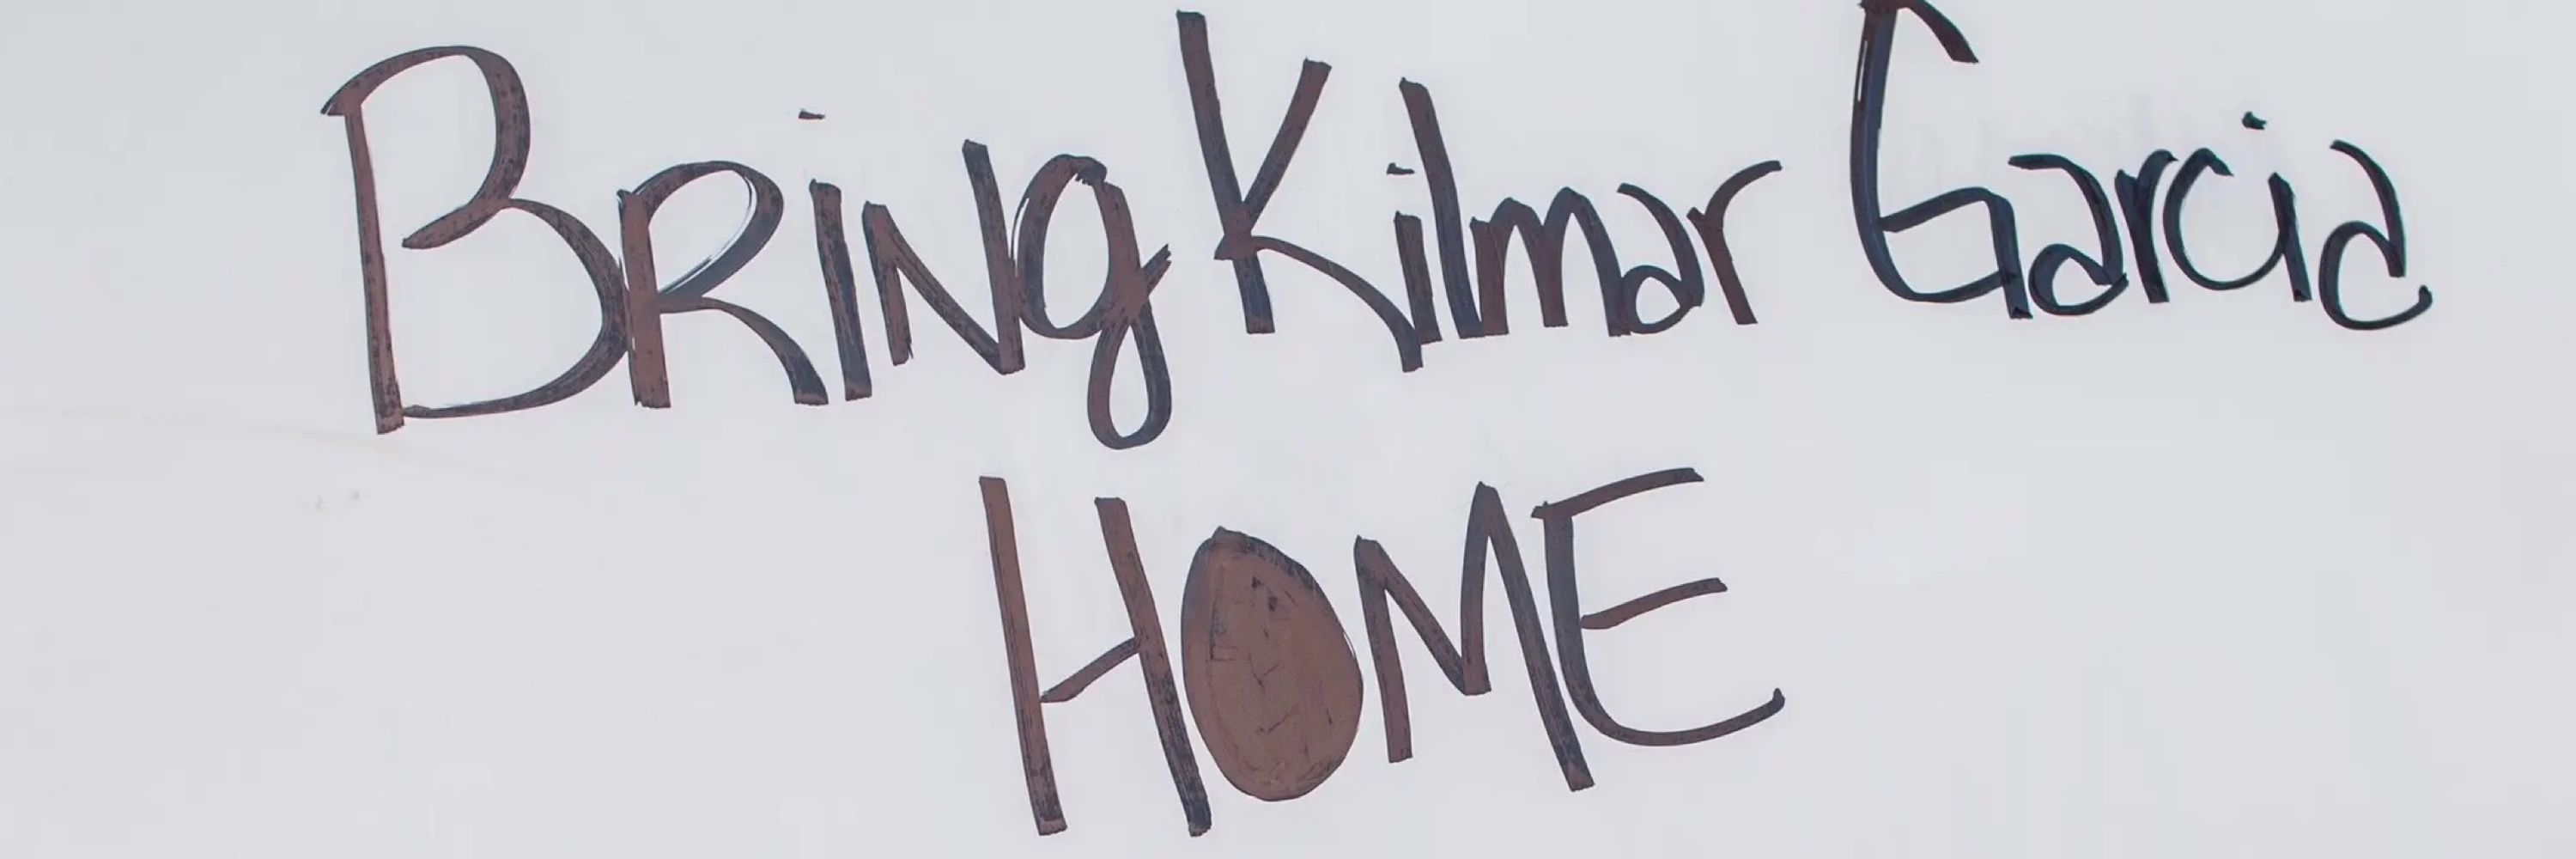 BRiNg Kilmar Garcia
HOME